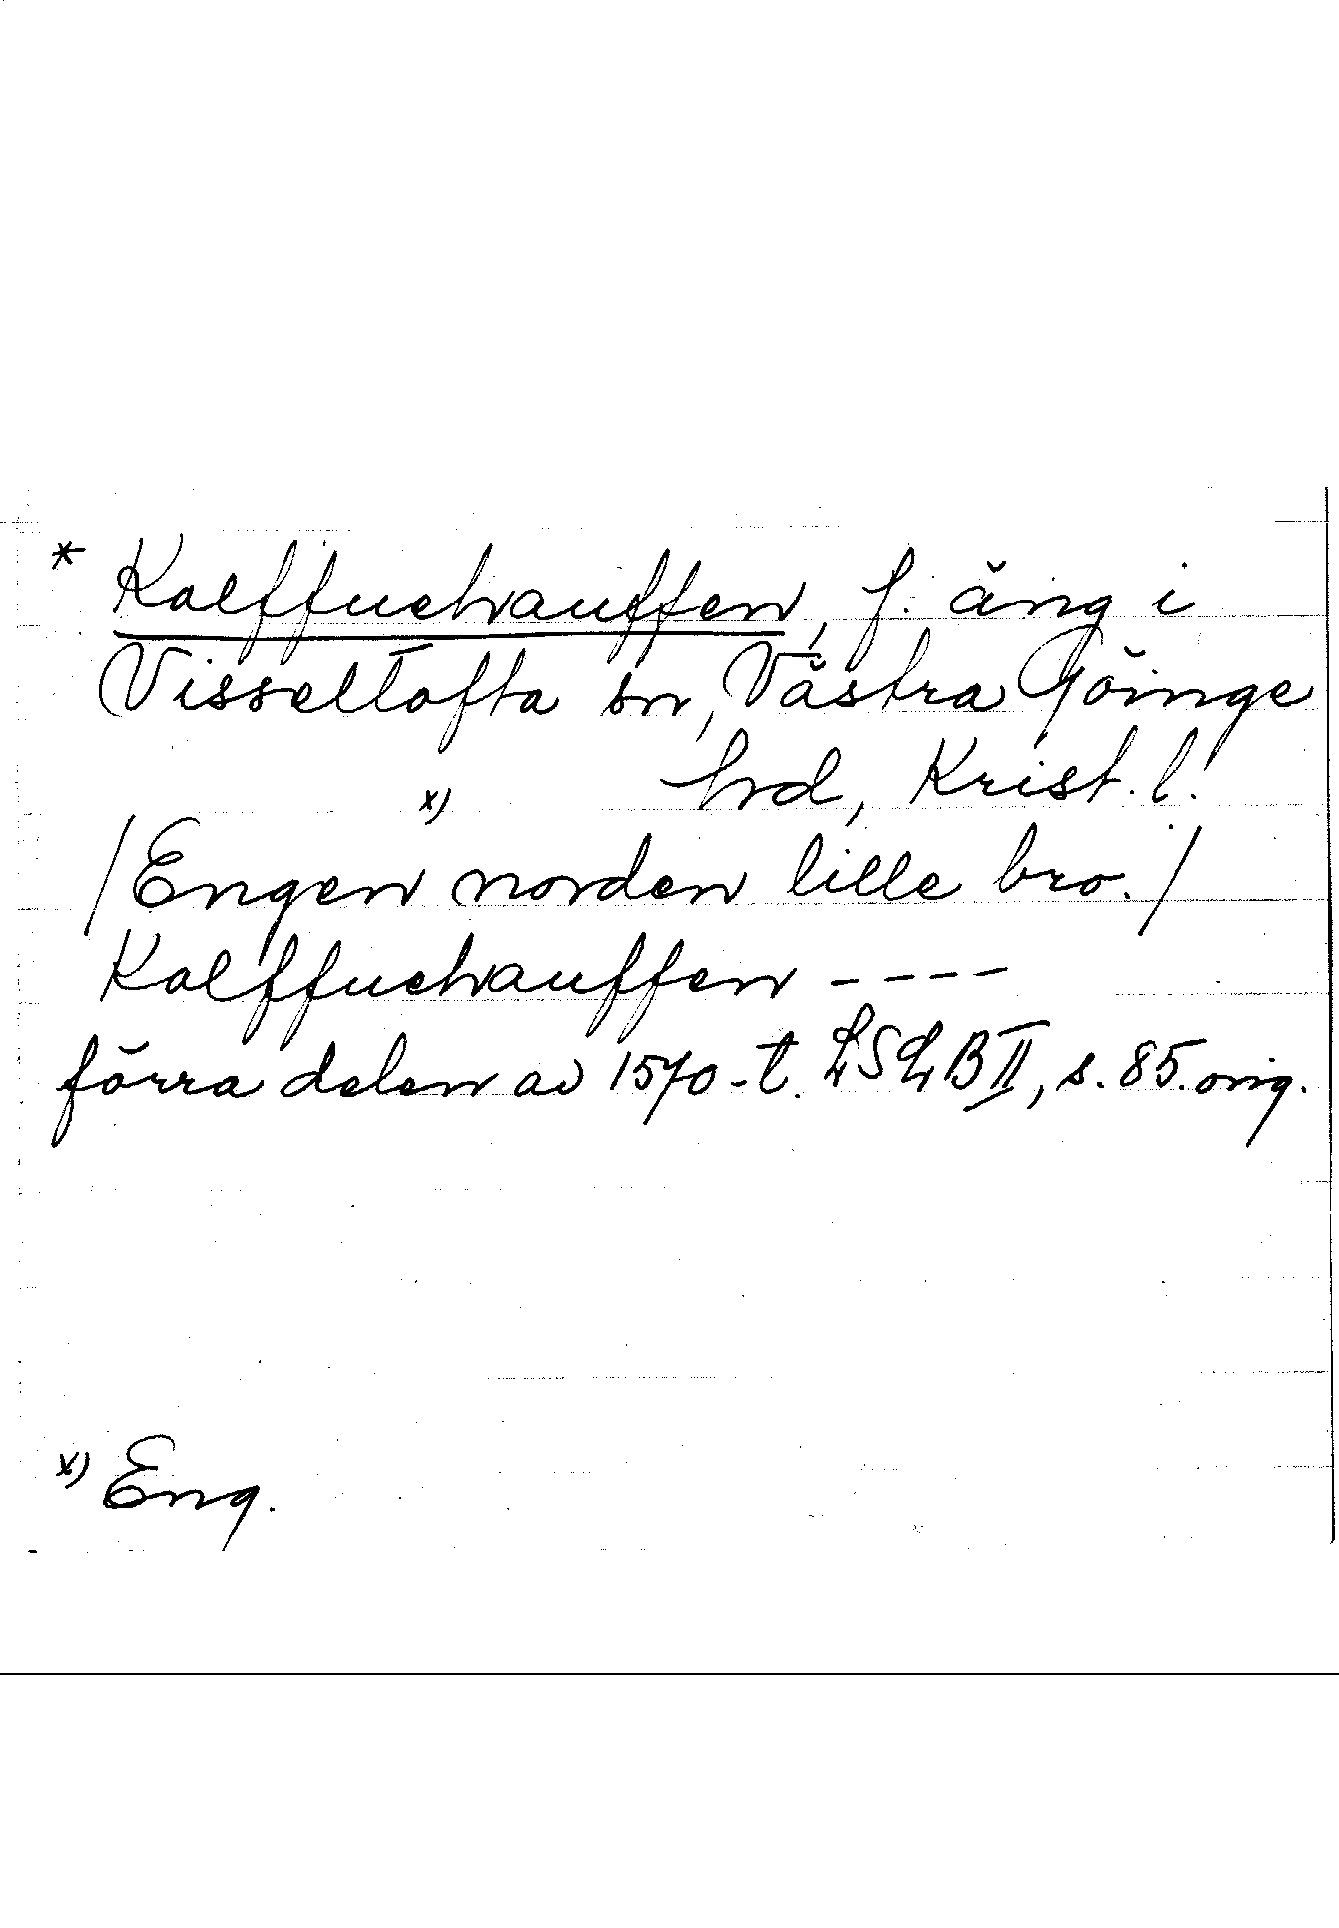 * Kalffuehauffen, f. äng i
Visseltofta sn, Västra Göinge
hrd, Krist. l.
/Engen x) norden lille bro./
Kalffuehauffen ----
förra delen av 1570-t. LSLB II, s. 85. orig.
x) Eng.